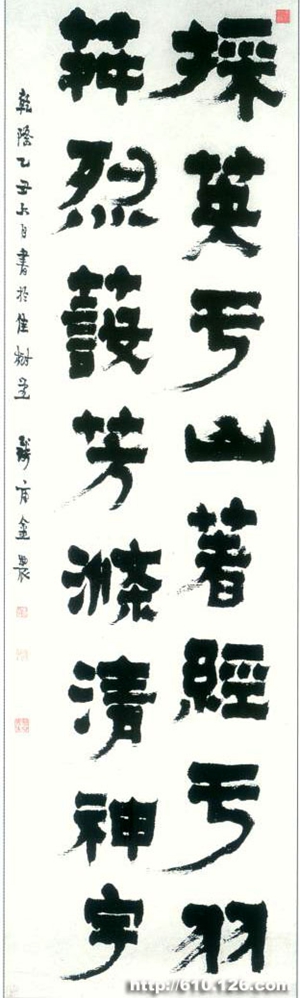 採英于山著經于羽
荈烈蔎芳滌清神宇
乾隆乙丑六月書於佳樹堂 金農
http://610.126.com